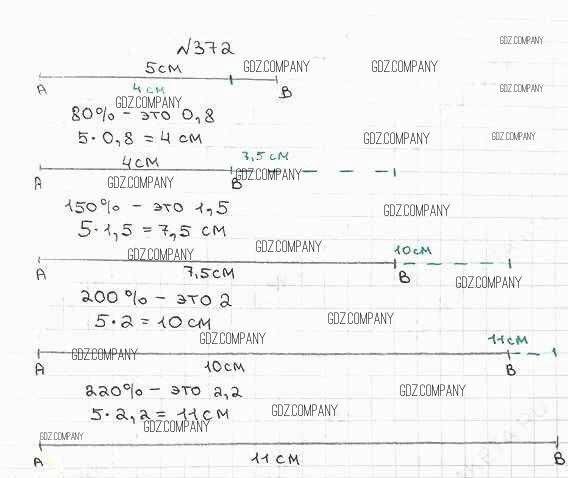 №372
GDZ.COMPANY
5см GDZ.COMPANY GDZ.COMPANY
A 4см B GDZ.COMPANY
GDZ.COMPANY
80% - это 0,8
5·0,8 = 4 см GDZ.COMPANY GDZ.COMPANY
4см 7,5см
A GDZ.COMPANY B GDZ.COMPANY
150% - это 1,5 GDZ.COMPANY
5·1,5 = 7,5 см
GDZ.COMPANY GDZ.COMPANY 10см
A 7,5см B GDZ.COMPANY
200% - это 2
5·2 = 10 см GDZ.COMPANY
GDZ.COMPANY 11см
GDZ.COMPANY
A 10см B
220% - это 2,2 GDZ.COMPANY
5·2,2 = 11 см GDZ.COMPANY
GDZ.COMPANY GDZ.COMPANY
A 11 см B